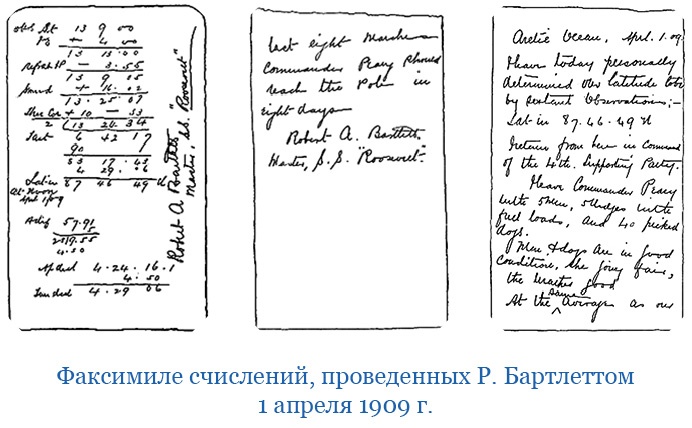 13 9 00
+ 4 00
13 13 00
Refrak IP – 3.55
13 9 05
Semid + 16.02
13.25.07
Ther Cor + 10 – 33
13 24 34
6 42 17
90
83 17 43
4 29 . 06
Lat in 87 46 49 N
At Noon
April 1/09
A diff 57.91
4.50
Ap decl 4.24.16.1
4.50
True decl 4.29 06
Robert A. Bartlett
Master, S.S. "Roosevelt"
last eight Marches
Commander Peary should
reach the Pole in
eight days
Robert A. Bartlett
Master, S.S. "Roosevelt".
Arctic Ocean, Apl. 1.09.
Have today personally
determined our latitude
by sextant observations;–
Lat in 87.46.49 N
I return from here in command
of the 4th. supporting Party.
I leave Commander Peary
with 5 men, 5 sledges with
full loads, and 40 picked
dogs.
Men & dogs are in good
condition, the going fair,
the weather good
At the same average as our
Факсимиле счислений, проведенных Р. Бартлеттом
1 апреля 1909 г.